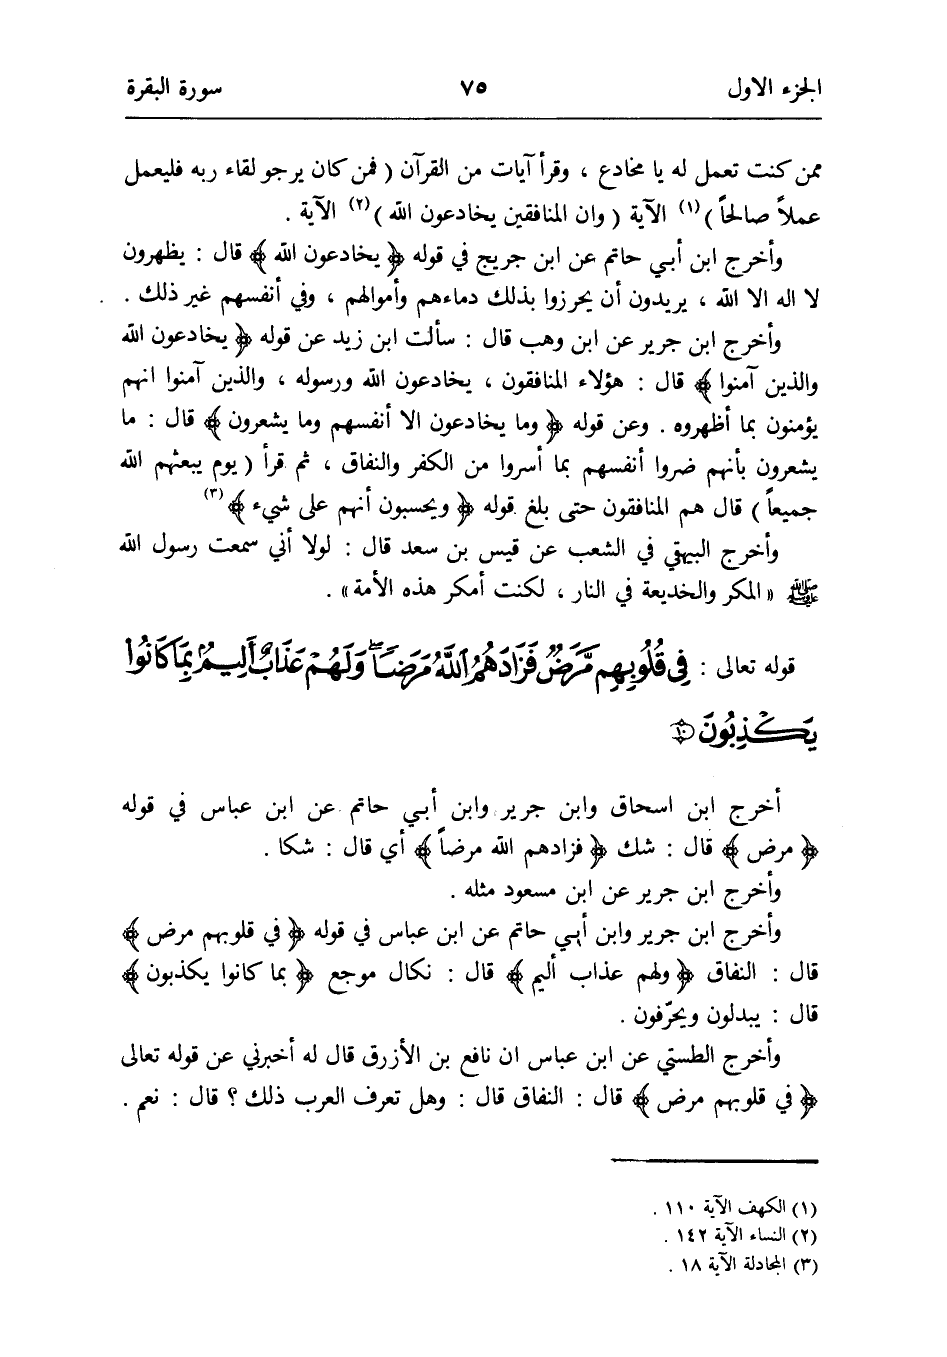 الجزء الاول ٧٥ سورة البقرة
ممن كنت تعمل له يا مخادع ، وقرأ آيات من القرآن ( فمن كان يرجو لقاء ربه فليعمل
عملاً صالحاً )(١) الآية ( وان المنافقين يخادعون الله )(٢) الآية .
وأخرج ابن أبي حاتم عن ابن جريج في قوله ﴿ يخادعون الله ﴾ قال : يظهرون
لا اله الا الله ، يريدون أن يحرزوا بذلك دماءهم وأموالهم ، وفي أنفسهم غير ذلك .
وأخرج ابن جرير عن ابن وهب قال : سألت ابن زيد عن قوله ﴿ يخادعون الله
والذين آمنوا ﴾ قال : هؤلاء المنافقون ، يخادعون الله ورسوله ، والذين آمنوا انهم
يؤمنون بما أظهروه . وعن قوله ﴿ وما يخادعون الا أنفسهم وما يشعرون ﴾ قال : ما
يشعرون بأنهم ضروا أنفسهم بما أسروا من الكفر والنفاق ، ثم قرأ ( يوم يبعثهم الله
جميعاً ) قال هم المنافقون حتى بلغ قوله ﴿ ويحسبون أنهم على شيء ﴾(٣)
وأخرج البيهقي في الشعب عن قيس بن سعد قال : لولا أني سمعت رسول الله
ﷺ « المكر والخديعة في النار ، لكنت أمكر هذه الأمة» .
قوله تعالى : فِي قُلُوبِهِم مَّرَضٌ فَزَادَهُمُ ٱللَّهُ مَرَضًاۖ وَلَهُمْ عَذَابٌ أَلِيمٌۢ بِمَا كَانُوا۟
يَكْذِبُونَ ۝١٠
أخرج ابن اسحاق وابن جرير وابن أبي حاتم عن ابن عباس في قوله
﴿ مرض ﴾ قال : شك ﴿ فزادهم الله مرضاً ﴾ أي قال : شكا .
وأخرج ابن جرير عن ابن مسعود مثله .
وأخرج ابن جرير وابن أبي حاتم عن ابن عباس في قوله ﴿ في قلوبهم مرض ﴾
قال : النفاق ﴿ ولهم عذاب أليم ﴾ قال : نكال موجع ﴿ بما كانوا يكذبون ﴾
قال : يبدلون ويحرّفون .
وأخرج الطستي عن ابن عباس ان نافع بن الأزرق قال له أخبرني عن قوله تعالى
﴿ في قلوبهم مرض ﴾ قال : النفاق قال : وهل تعرف العرب ذلك ؟ قال : نعم .
(١) الكهف الآية ١١٠ .
(٢) النساء الآية ١٤٢ .
(٣) المجادلة الآية ١٨ .